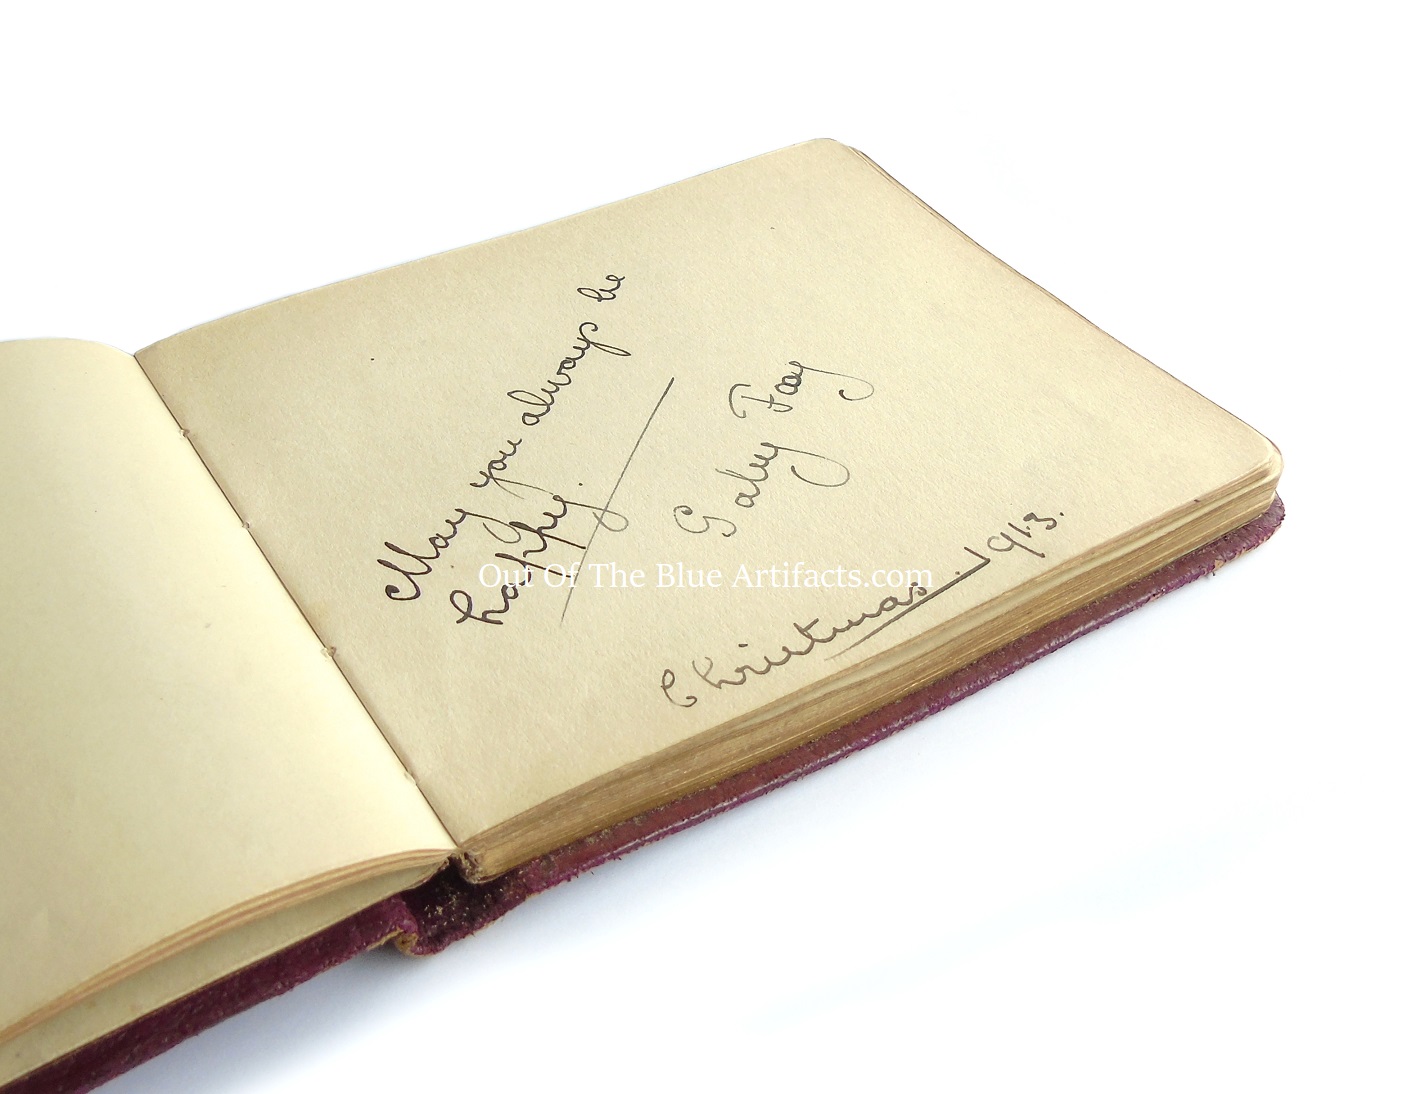 May you always be
happy.
Gaby Fay
Christmas. 1913.
Out Of The Blue Artifacts.com